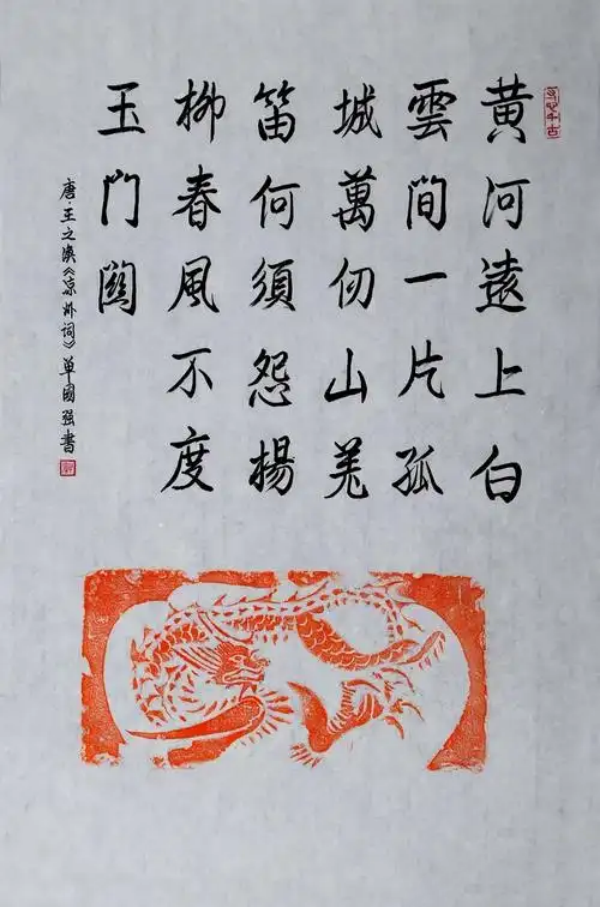 黄河遠上白
雲間一片孤
城萬仞山羌
笛何須怨楊
柳春風不度
玉門關
唐·王之渙《凉州词》单國强書